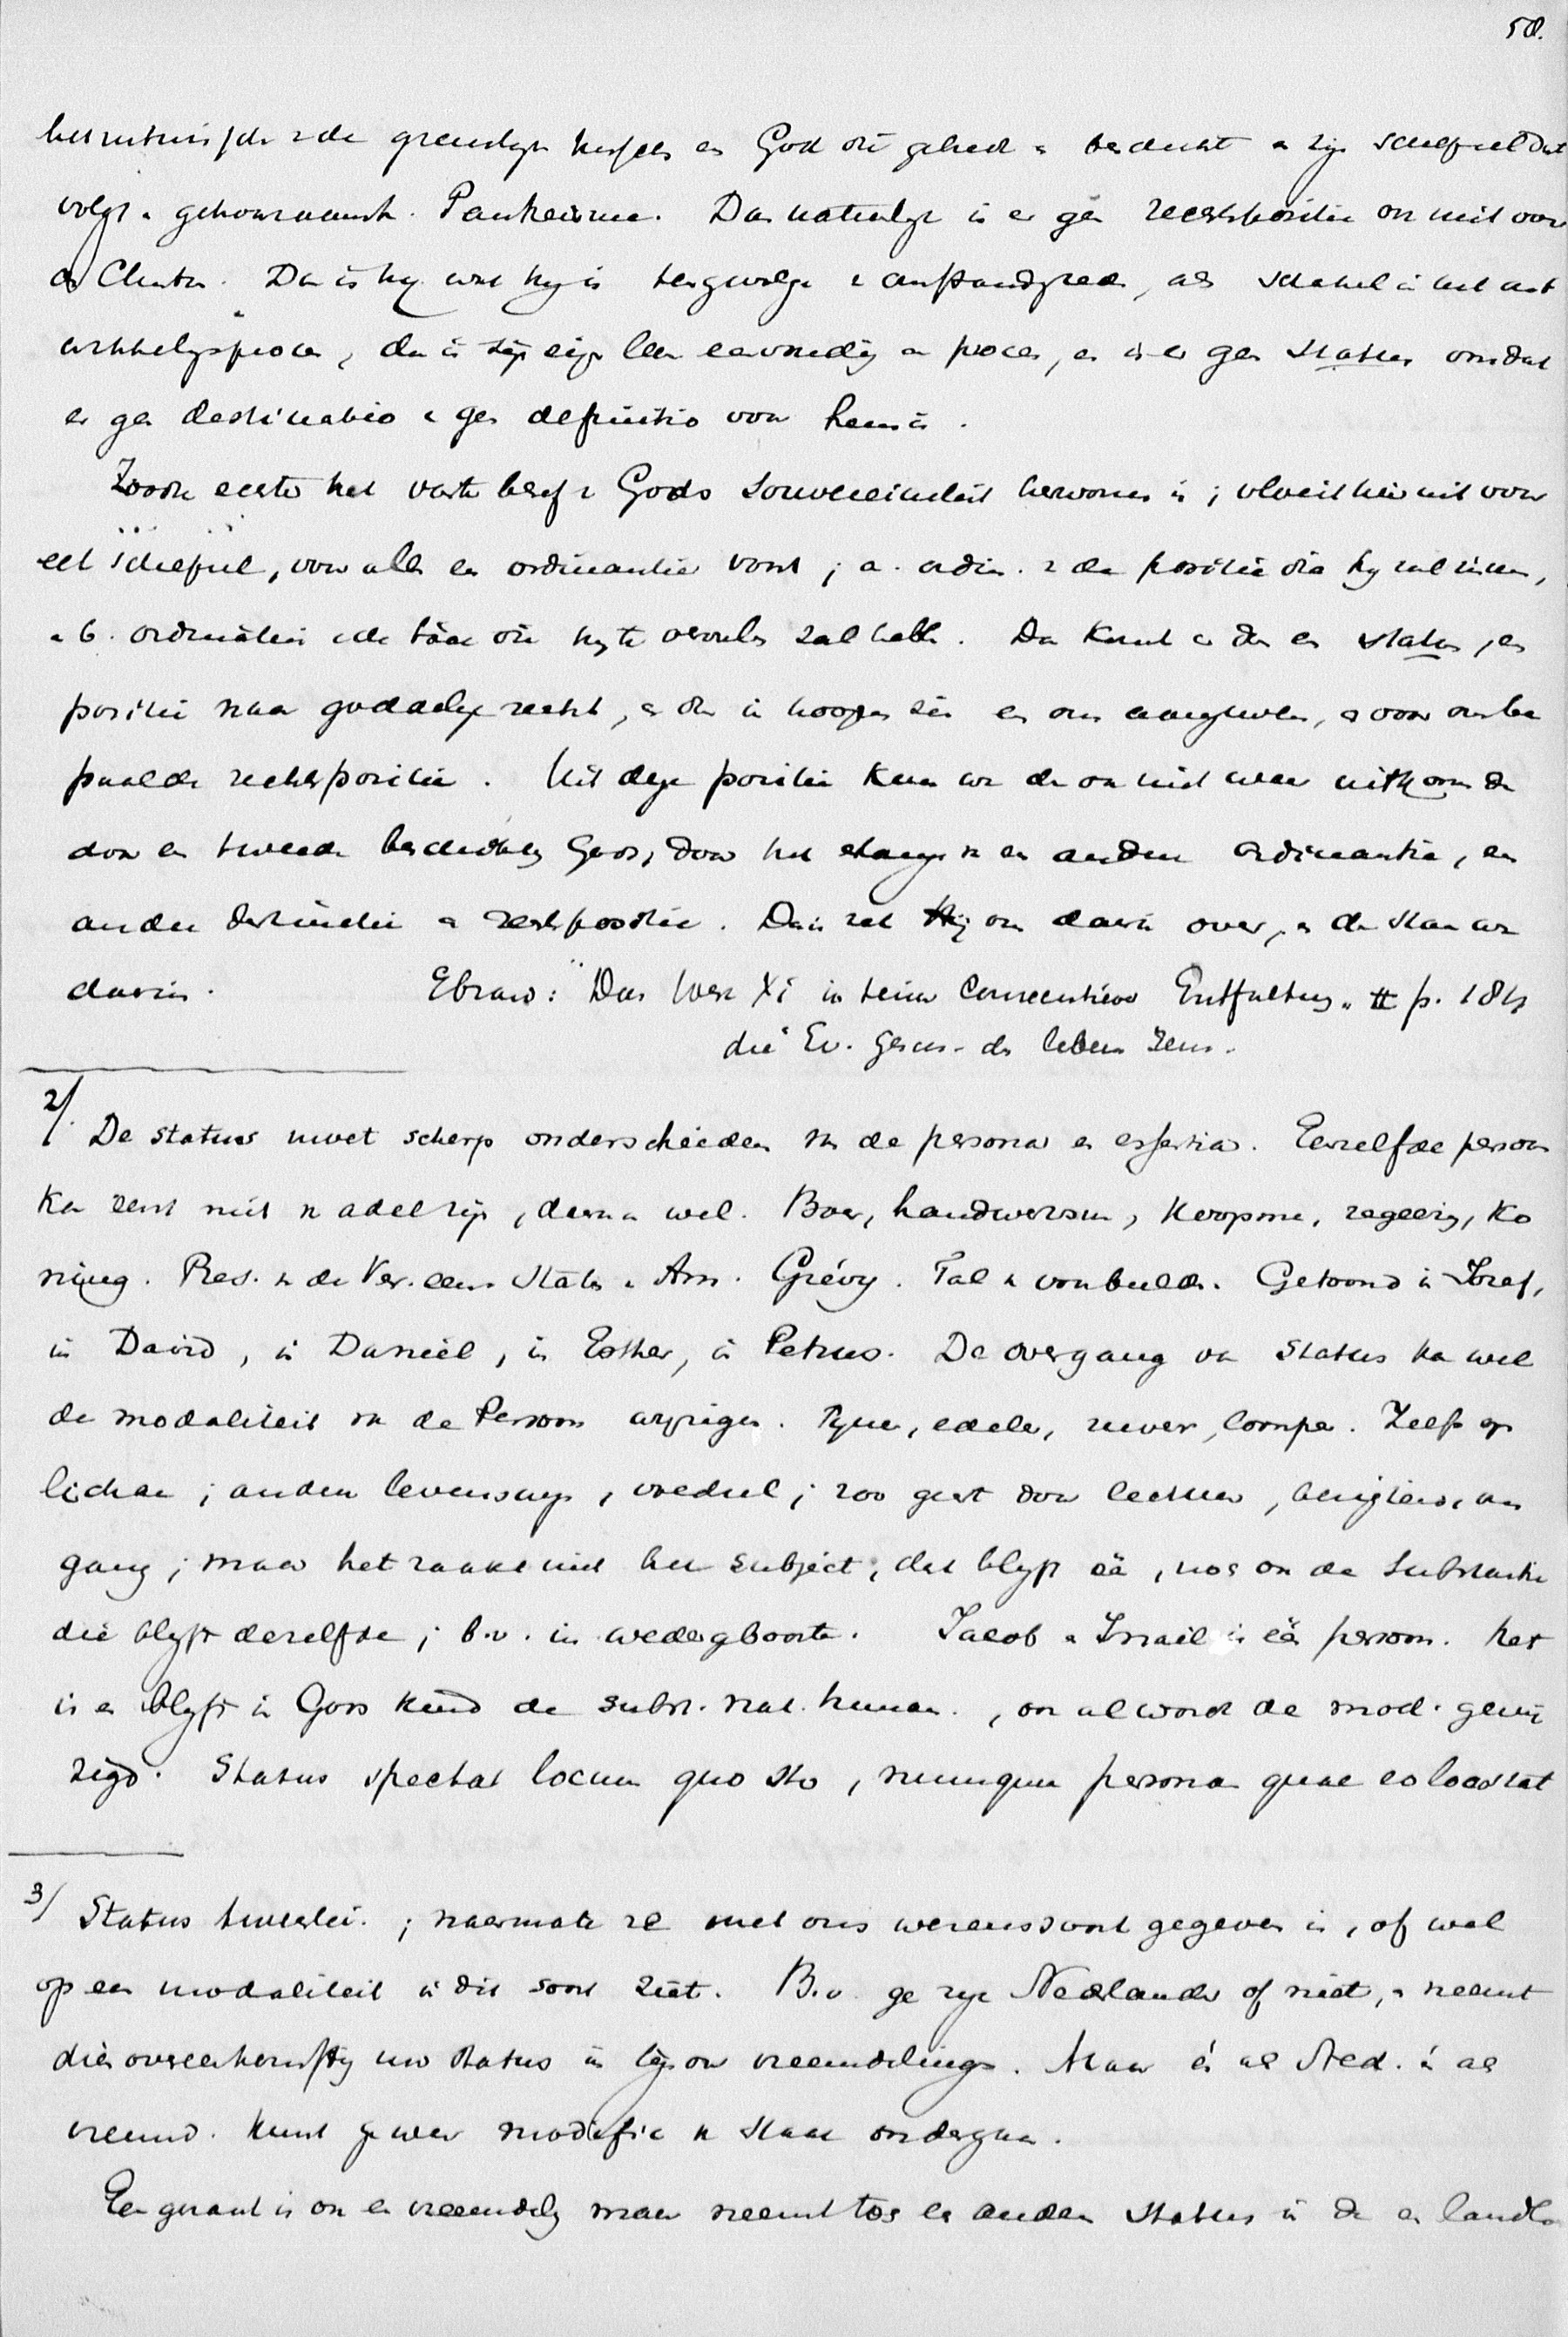 58.
de grenslyn tusschen en God die gebied en bedenkt en zijn schepsel dat
volgt en gehoorzaamt. Pantheisme. Dan natuurlyk is er gen rechtspositie ook niet voor
de Christen. Dan is hy wat hy is tengevolge omstandigheden, als schakel in het ont
wikkelingsproces, dan is zijn eigen leven eenvoudig een proces, en is er gen status omdat
er gen destinatio en gen definitio voor hem is.
Zoodra echter het vaste besef v Gods Souvereiniteit herwonnen is; vloeit hieruit voor
elk schepsel, voor alles een ordinantie voort; a. ordin. v de positie die hy zal innemen,
en b. ordinantie v de taak die hy te vervullen zal hebben. Dan komt er dus een status, een
positie naar goddelijk recht, en die in hoogen zin en ons aangewezen, en voor ons be
paalde rechtspositie. Uit deze positie kunnen we dan ook niet weer uitkomen dan
door een tweede beschikking Gods, door het erlangen v een andere ordinantie, een
andere destinatie en rechtspositie. Dan zet Hij ons daarin over, en dan staan we
daarin. Ebrard: "Das Werk Xi in seiner Entfaltung" II p. 181
die Ev. Gesch. des Lebens Jesu.
2/. De status moet scherp onderscheiden vn de persona en essentia. Eenzelfde persoon
kan eerst niet v adel zijn, daarna wel. Boer, handwerksm, koopman, regeering, Ko
ning. Pres. v de Ver. Staten v Am. Grévy. Tal v voorbeelden. Getoond in Jozef,
in David, in Daniël, in Esther, in Petrus. De overgang van Status kan wel
de modaliteit vn de Persoon wyzigen. Fyner, edeler, ruwer, lomper. Zelfs op
lichaam; andere levenswyze, voedsel; zoo geest door lectuur, bezigheid, om
gang; maar het raakt niet het subject; dat blyft één, noch ook de Substantie
die blyft dezelfde; b.v. in wedergeboorte. Jacob en Israël is één persoon. Het
is en blyft in Gods kind de subst. nat. human., ook al wordt de mod. gewij
zigd. Status spectat locum quo sto, nunquam persona quae eo loco stat
3/ Status tweeërlei.; naarmate ze met ons wezenssoort gegeven is, of wel
op een modaliteit in dit soort ziet. B.v. ge zyt Nederlander of niet, en neemt
dienovereenkomstig uw status in tegenover vreemdelingen. Maar én als Ned. én als
vreemd. kunt ge weer modific. v staat ondergaan.
Een gezant is ook een vreemdeling maar neemt toch een anderen status in dan een